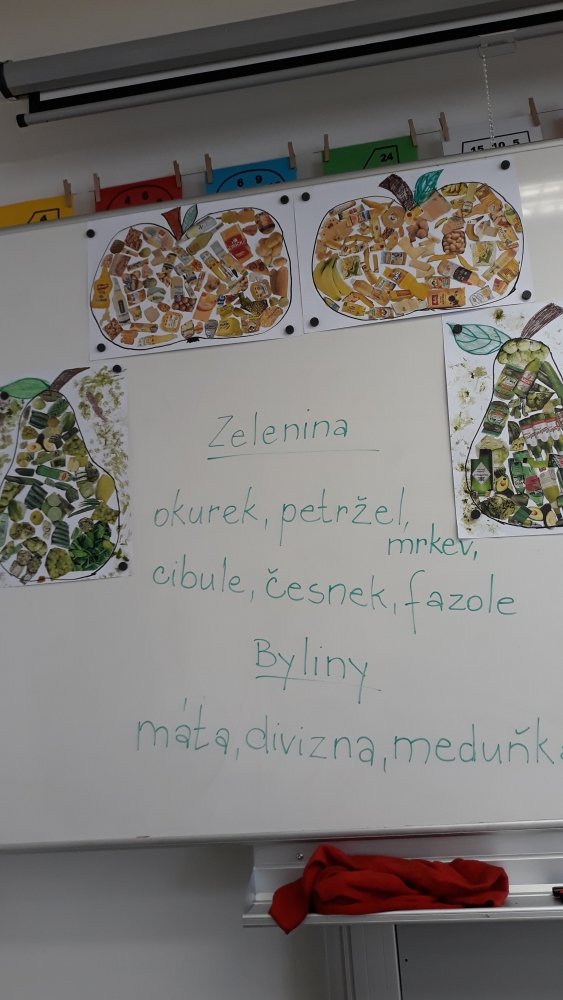 24
6 9
4 6
4
15 10 5
Zelenina
okurek, petržel,
mrkev,
cibule, česnek, fazole
Byliny
máta, divizna, meduňka